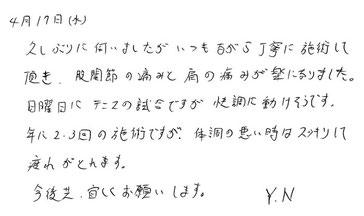 4月17日(木)
久しぶりに伺いましたが いつもながら丁寧に施術して
頂き、股関節の痛みと肩の痛みが楽になりました。
日曜日にテニスの試合ですが 快調に動けそうです。
年に2.3回の施術ですが、体調の悪い時はスッキリして
疲れがとれます。
今後共、宜しくお願いします。
Y.N